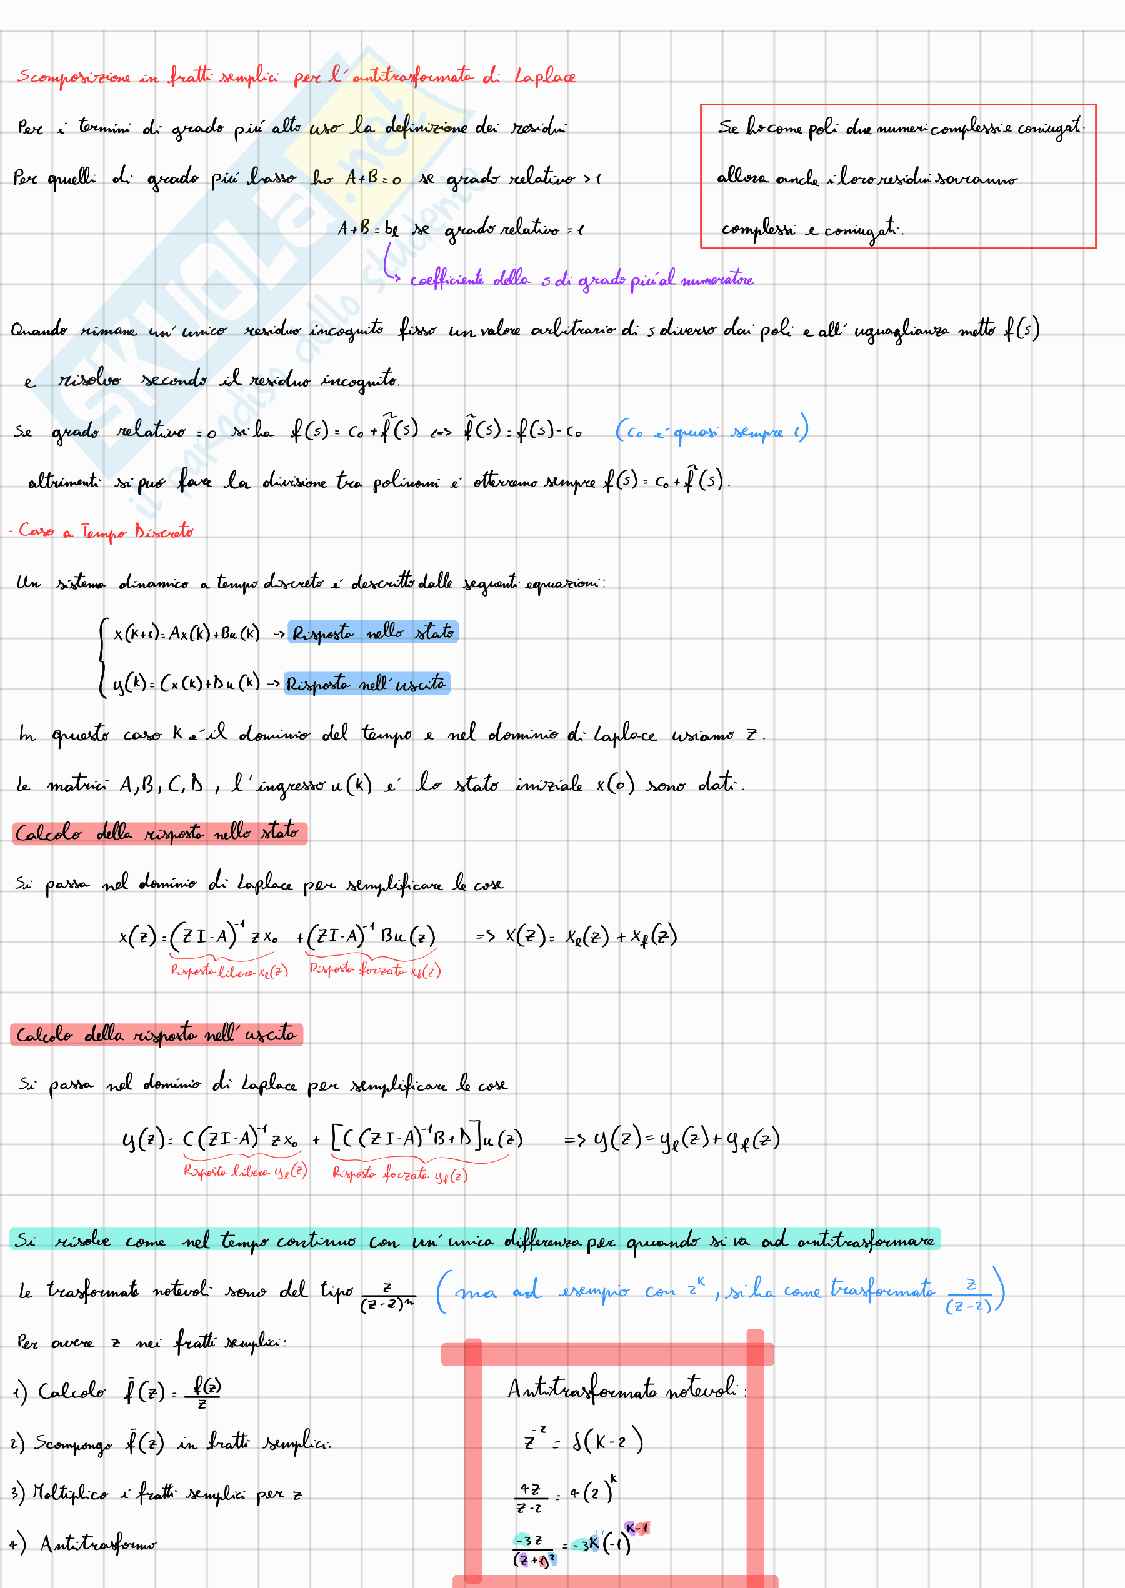 Scomposizione in fratti semplici per l'antitrasformata di Laplace
Per i termini di grado più alto uso la definizione dei residui
Per quelli di grado più basso ho A+B=0 se grado relativo >1
A+B=bₗ se grado relativo=1
↳ coefficiente della s di grado più al numeratore
Se ho come poli due numeri complessi e coniugati
allora anche i loro residui saranno
complessi e coniugati.
Quando rimane un'unico residuo incognito fisso un valore arbitrario di s diverso dai poli e all'uguaglianza metto f(s)
e risolvo secondo il residuo incognito.
Se grado relativo=0 si ha f(s)=c₀+f̃(s) <=> f̃(s)=f(s)-c₀ (c₀ è quasi sempre 1)
altrimenti si può fare la divisione tra polinomi e otterremo sempre f(s)=c₀+f̃(s).
- Caso a Tempo Discreto
Un sistema dinamico a tempo discreto è descritto dalle seguenti equazioni:
x(k+1)=Ax(k)+Bu(k) → Risposta nello stato
y(k)=Cx(k)+Du(k) → Risposta nell'uscita
In questo caso k è il dominio del tempo e nel dominio di Laplace usiamo z.
Le matrici A,B,C,D, l'ingresso u(k) e lo stato iniziale x(0) sono dati.
Calcolo della risposta nello stato
Si passa nel dominio di Laplace per semplificare le cose
x(z)=(ZI-A)⁻¹zx₀ +(ZI-A)⁻¹Bu(z) => X(z)=Xₗ(z)+x_f(z)
Risposta libera xₗ(z) Risposta forzata x_f(z)
Calcolo della risposta nell'uscita
Si passa nel dominio di Laplace per semplificare le cose
y(z)=C(ZI-A)⁻¹zx₀ + [C(ZI-A)⁻¹B+D]u(z) => y(z)=yₗ(z)+y_f(z)
Risposta libera yₗ(z) Risposta forzata y_f(z)
Si risolve come nel tempo continuo con un'unica differenza per quando si va ad antitrasformare
Le trasformate notevoli sono del tipo z/(z-2)ⁿ (ma ad esempio con 2ᵏ, si ha come trasformata z/(z-2))
Per avere z nei fratti semplici:
1) Calcolo f̄(z)=f(z)/z
2) Scompongo f̄(z) in fratti semplici.
3) Moltiplico i fratti semplici per z
4) Antitrasformo
Antitrasformate notevoli:
z⁻²=δ(k-2)
4z/(z-2)=4(2)ᵏ
-3z/(z+1)²=-3k(-1)ᵏ⁻¹
SKUOLA.net
il paradiso dello studente